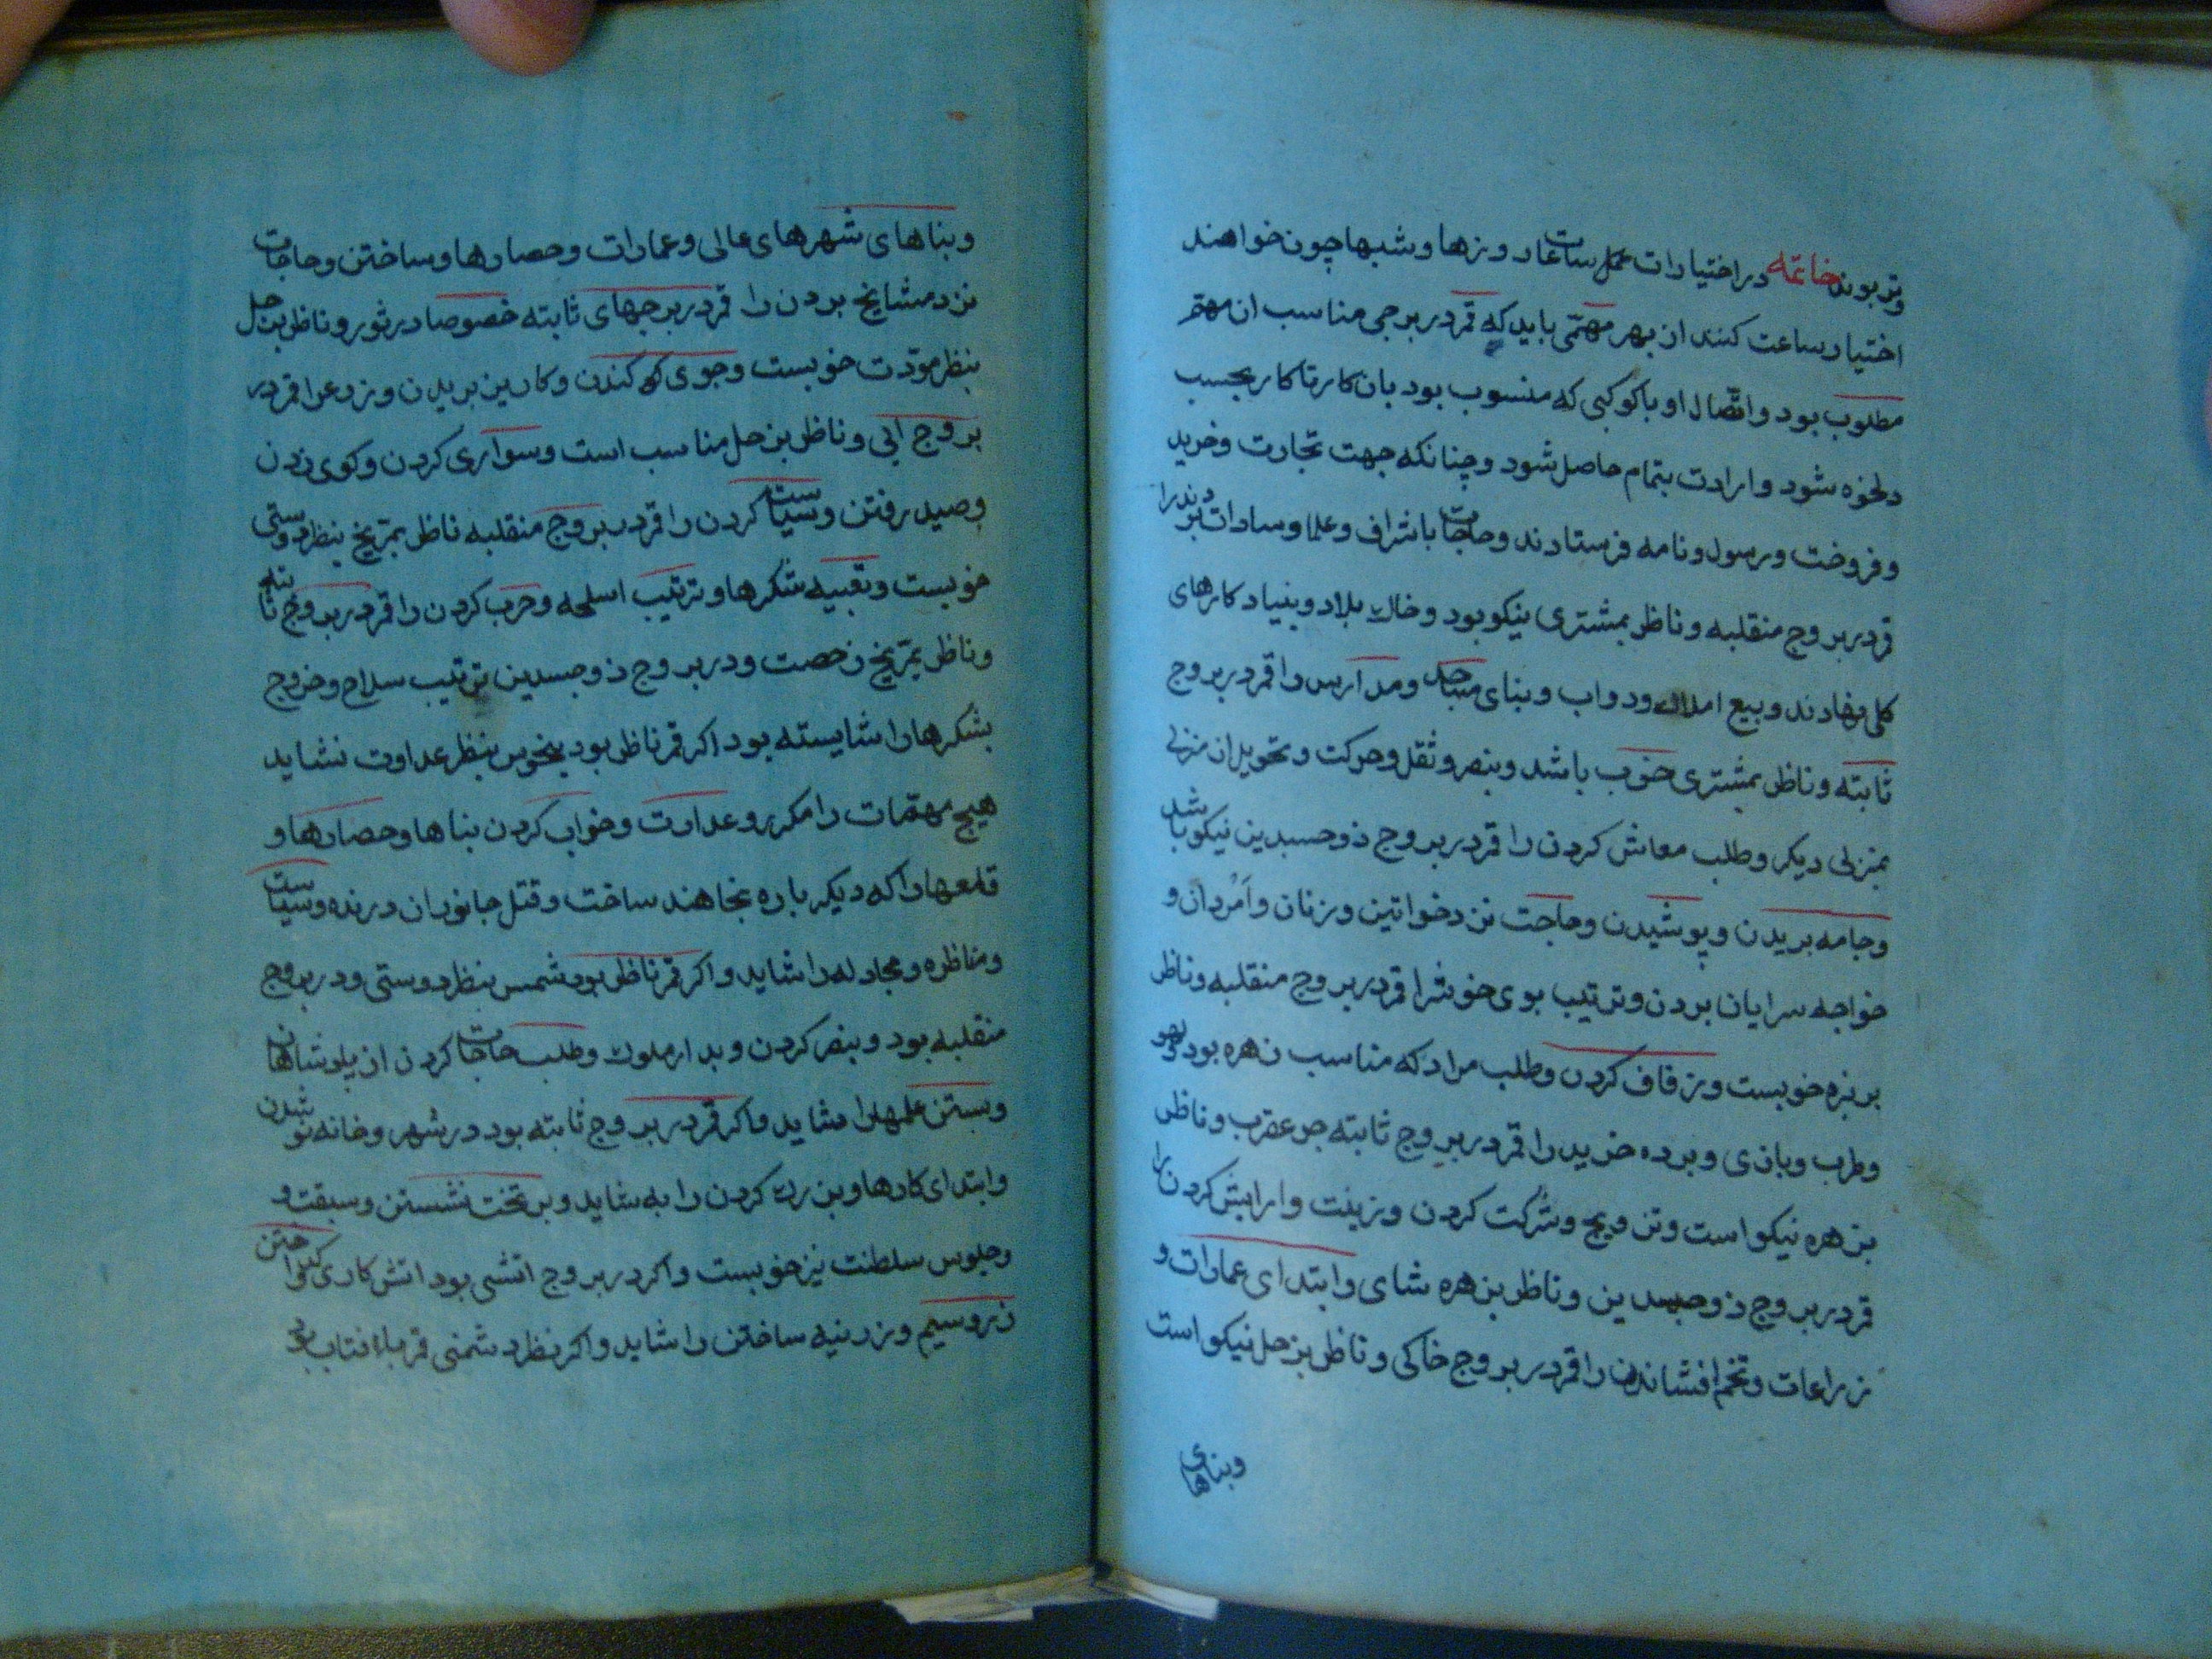 وتر بوند خاتمه در اختیارات عمل ساعات روزها و شبها چون خواهند
اختیار ساعت کنند از بهر مهمّی باید که قمر در برجی مناسب ان مهمّ
مطلوب بود و اتصال او با کوکبی که منسوب بود بان کار تا کار بحسب
دلخوه شود و ارادت بتمام حاصل شود و چنانکه جهت تجارت و خرید
و فروخت و رسول و نامه فرستادند و حاجات باشراف و علما و سادات بردند را
قمر در بروج منقلبه و ناظر بمشتری نیکو بود و خاک بلاد و بنیاد کارهای
کلی نهادند و بیع املاک و دواب و بنای مساجد و مدارس را قمر در بروج
ثابته و ناظر بمشتری خوب باشد و بنصر و ثقل و حرکت و تحویل از منزلی
بمنزلی دیکر و طلب معاش کردن را قمر در بروج ذوجسدین نیکو باشد
و جامه بریدن و پوشیدن و حاجت نزد خواتین و زنان و اَمْردان و
خواجه سرایان بردن و ترتیب بوی خوش را قمر در بروج منقلبه و ناظر
بزهره خوبست و زفاف کردن و طلب مراد که مناسب زهره بود و لهو
و طرب و بازی و برده خرید را قمر در بروج ثابته جز عقرب و ناظر
بزهره نیکو است و تزویج و شرکت کردن و زینت و ارایش کردن را
قمر در بروج ذوجسدین و ناظر بزهره شای و ابتدای عمارات و
زراعات و تخم افشاندن را قمر در بروج خاکی و ناظر بزحل نیکو است
و بناهای
و بناهای شهرهای عالی و عمارات و حصارها و ساختن و حاجات
نزد مشایخ بردن را قمر در برجهای ثابته خصوصا در ثور و ناظر بزحل
بنظر مودّت خوبست و جوی که کندن و کاریز بریدن و زرع را قمر در
بروج ابی و ناظر بزحل مناسب است و سواری کردن و کوی زدن
و صید رفتن و سیاست کردن را قمر در بروج منقلبه ناظر بمرّیخ بنظر دوستی
خوبست و تعبیه لشکرها و ترتیب اسلحه و حرب کردن را قمر در بروج ثابته
و ناظر بمرّیخ رخصت و در بروج ذوجسدین ترتیب سلاح و خروج
لشکرها را شایسته بود اکر قمر ناظر بود بنحوس بنظر عداوت نشاید
هیچ مهمّات را مکر بر و عداوت و خراب کردن بناها و حصارها و
قلعهارا که دیکر باره نخاهند ساخت و قتل جانوران درنده و سیاست
و مناظره و مجادله را شاید و اکر قمر ناظر بود بشمس بنظر دوستی و در بروج
منقلبه بود و بنصر کردن و بدار ملوک و طلب حاجات کردن از پادشاهان
و بستن علمها را شاید و اکر قمر در بروج ثابته بود در شهر و خانه نو شدن
و ابتدای کارها و بزرک کردن را به شاید و بر تخت نشستن و سبقت و
و جلوس سلطنت نیز خوبست و اکر در بروج اتشی بود اتش کاری کداختن
زر و سیم و زرینه ساختن را شاید و اکر بنظر دشمنی قمر باافتاب بود